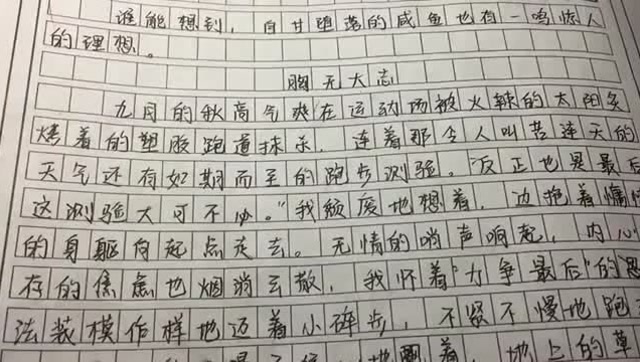 谁能想到，自甘堕落的咸鱼也有一鸣惊人
的理想。
胸无大志
九月的秋高气爽在运动场被火辣的太阳炙
烤着的塑胶跑道抹杀，连着那令人叫苦连天的
天气还有如期而至的跑步测验。“反正也是最后
这测验大可不必。”我颓废地想着，边拖着慵
的身躯向起点走去。无情的哨声响起，内心
存的焦虑也烟消云散，我怀着“力争最后”的
法装模作样地迈着小碎步，不紧不慢地跑
着，地上的草